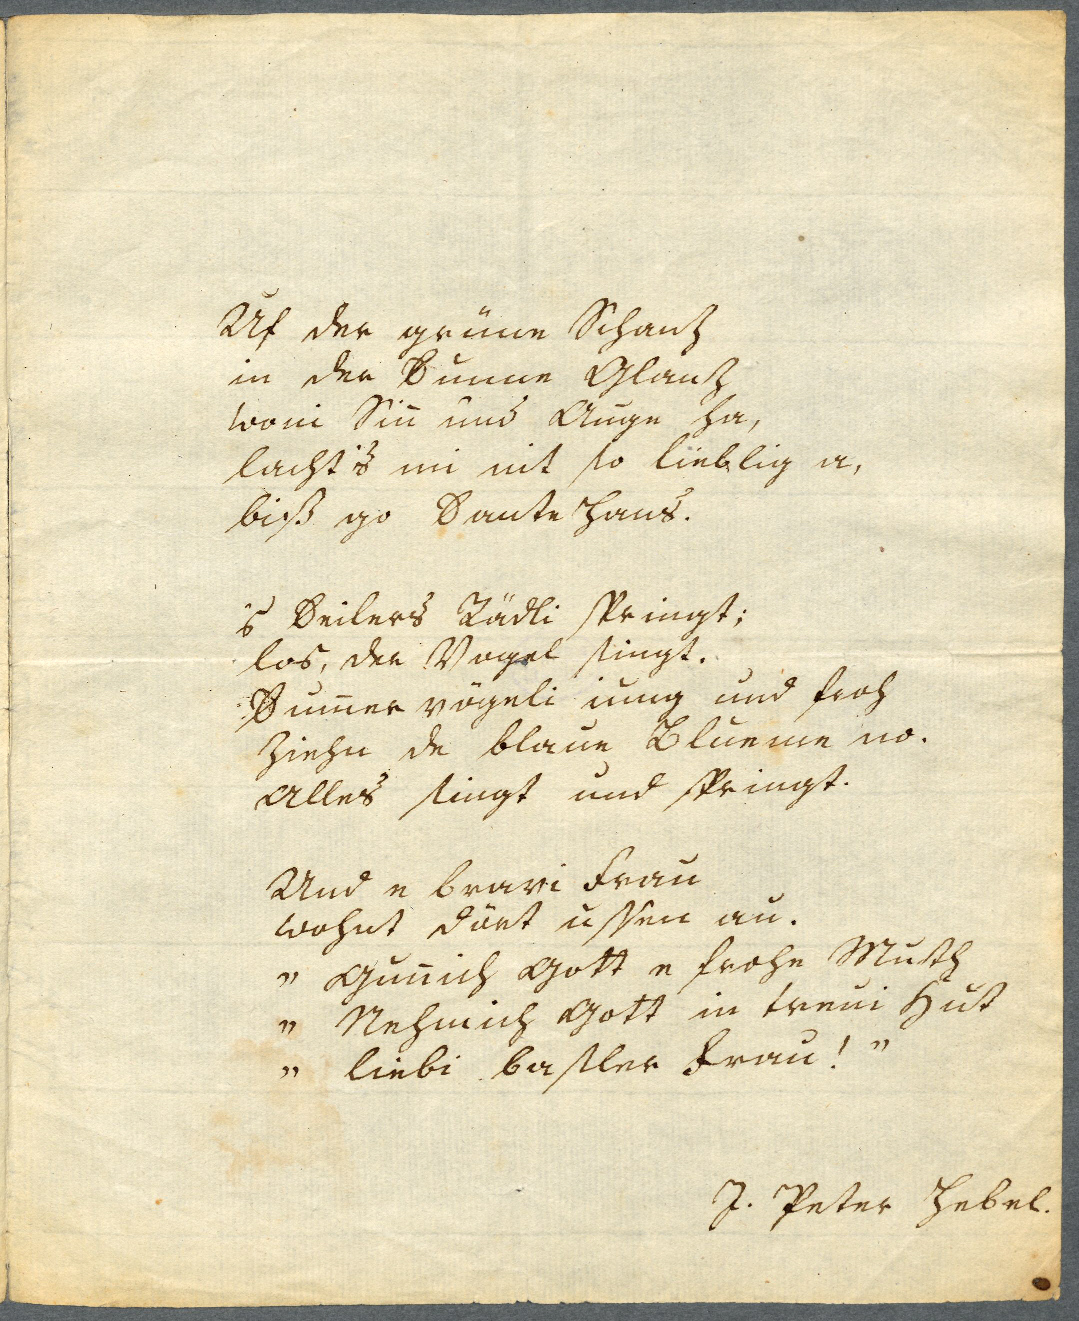 Uf der grüene Schanz
in der Sunne Glanz
woni Sinn und Auge ha,
lacht's mi nit so lieblig a,
biß go Sante Hans.
's Seilers Rädli springt;
los, der Vogel singt.
Summervögeli iung und froh
Ziehn de blaue Blueme no.
Alles singt und springt.
Und e bravi Frau
wohnt dört ussen au.
" Gunnich Gott e frohe Muth
" Nehmich Gott in treui Hut
" liebi basler Frau! "
J. Peter Hebel.